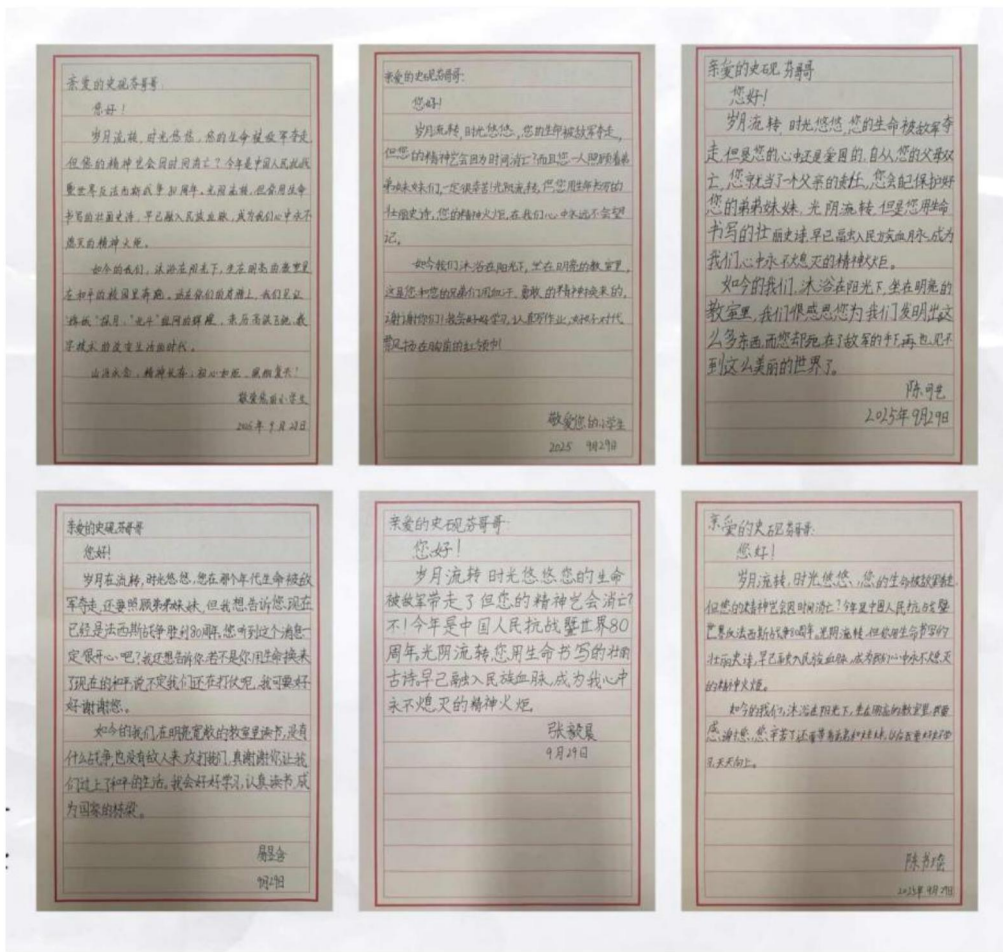 亲爱的史砚芬哥哥:
您好!
岁月流转,时光悠悠,您的生命被敌军夺走
但您的精神岂会因时间消亡?今年是中国人民抗战
暨世界反法西斯战争80周年。光阴流转,但您用生命
书写的壮丽史诗,早已融入民族血脉,成为我们心中永不
熄灭的精神火炬。
如今的我们,沐浴在阳光下,坐在明亮的教室里
在和平的校园里奔跑。站在你们的肩膀上,我们见证
“嫦娥”探月,“北斗”组网的辉煌,亲历高铁飞驰,数
字技术的改变生活的时代。
山河永念,精神长存;初心如炬,
敬爱您的小学生
2025年9月29日
亲爱的史砚芬哥哥:
您好!
岁月流转,时光悠悠,您的生命被敌军夺走,
但您的精神岂会因为时间消亡?而且您一人照顾着弟
弟妹妹们,一定很辛苦!光阴流转,但您用生命书写的
壮丽史诗,您的精神火炬,在我们心中永远不会忘
记。
如今我们沐浴在阳光下,坐在明亮的教室里,
这是您和您的兄弟们用血汗,勇敢的精神换来的,
谢谢你们!我会好好学习,认真写作业,对
在胸前的红领巾!
敬爱您的小学生
2025 9月29日
亲爱的史砚芬哥哥
您好!
岁月流转,时光悠悠,您的生命被敌军夺
走,但是您的心中还是爱国的,自从您的父母双
亡,您就当了一个父亲的责任,您会自己保护好
您的弟弟妹妹,光阴流转,但是您用生命
书写的壮丽史诗,早已融入民族血脉,成为
我们心中永不熄灭的精神火炬。
如今的我们,沐浴在阳光下,坐在明亮的
教室里,我们很感恩您为我们发明出这
么多东西,而您却死在了敌军的手下,再也见不
到这么美丽的世界了。
陈可艺
2025年9月29日
亲爱的史砚芬哥哥
您好!
岁月在流转,时光悠悠,您在那个年代生命被敌
军夺走,还要照顾弟弟妹妹,但我想告诉您,现在
已经是法西斯战争胜利80周年,您听到这个消息一
定很开心吧?我还想告诉你,若不是你用生命换来
了现在的和平,说不定我们还在打仗呢,我可要好
好谢谢您。
如今的我们,在明亮宽敞的教室里读书,没有
什么战争,也没有敌人来攻打我们,真谢谢你让我
们过上了和平的生活。我会好好学习,认真读书,成
为国家的栋梁。
9月29日
亲爱的史砚芬哥哥:
您好!
岁月流转 时光悠悠 您的生命
被敌军带走了但您的精神岂会消亡?
不!今年是中国人民抗战暨世界80
周年,光阴流转,您用生命书写的壮丽
古诗,早已融入民族血脉,成为我心中
永不熄灭的精神火炬。
张毅晨
9月29日
亲爱的史砚芬哥哥:
您好!
岁月流转,时光悠悠,您的生命被敌军夺走,
但您的精神岂会因时间消亡?今年是中国人民抗战暨
世界反法西斯战争80周年。光阴流转,但你用生命书写的
壮丽史诗,早已融入民族血脉,成为我们心中永不熄灭
的精神火炬。
如今的我们,沐浴在阳光下,坐在明亮的教室里,我要
感谢您,您辛苦了还要带着弟弟和妹妹,以后我要好好学
习,天天向上。
2025年9月29日